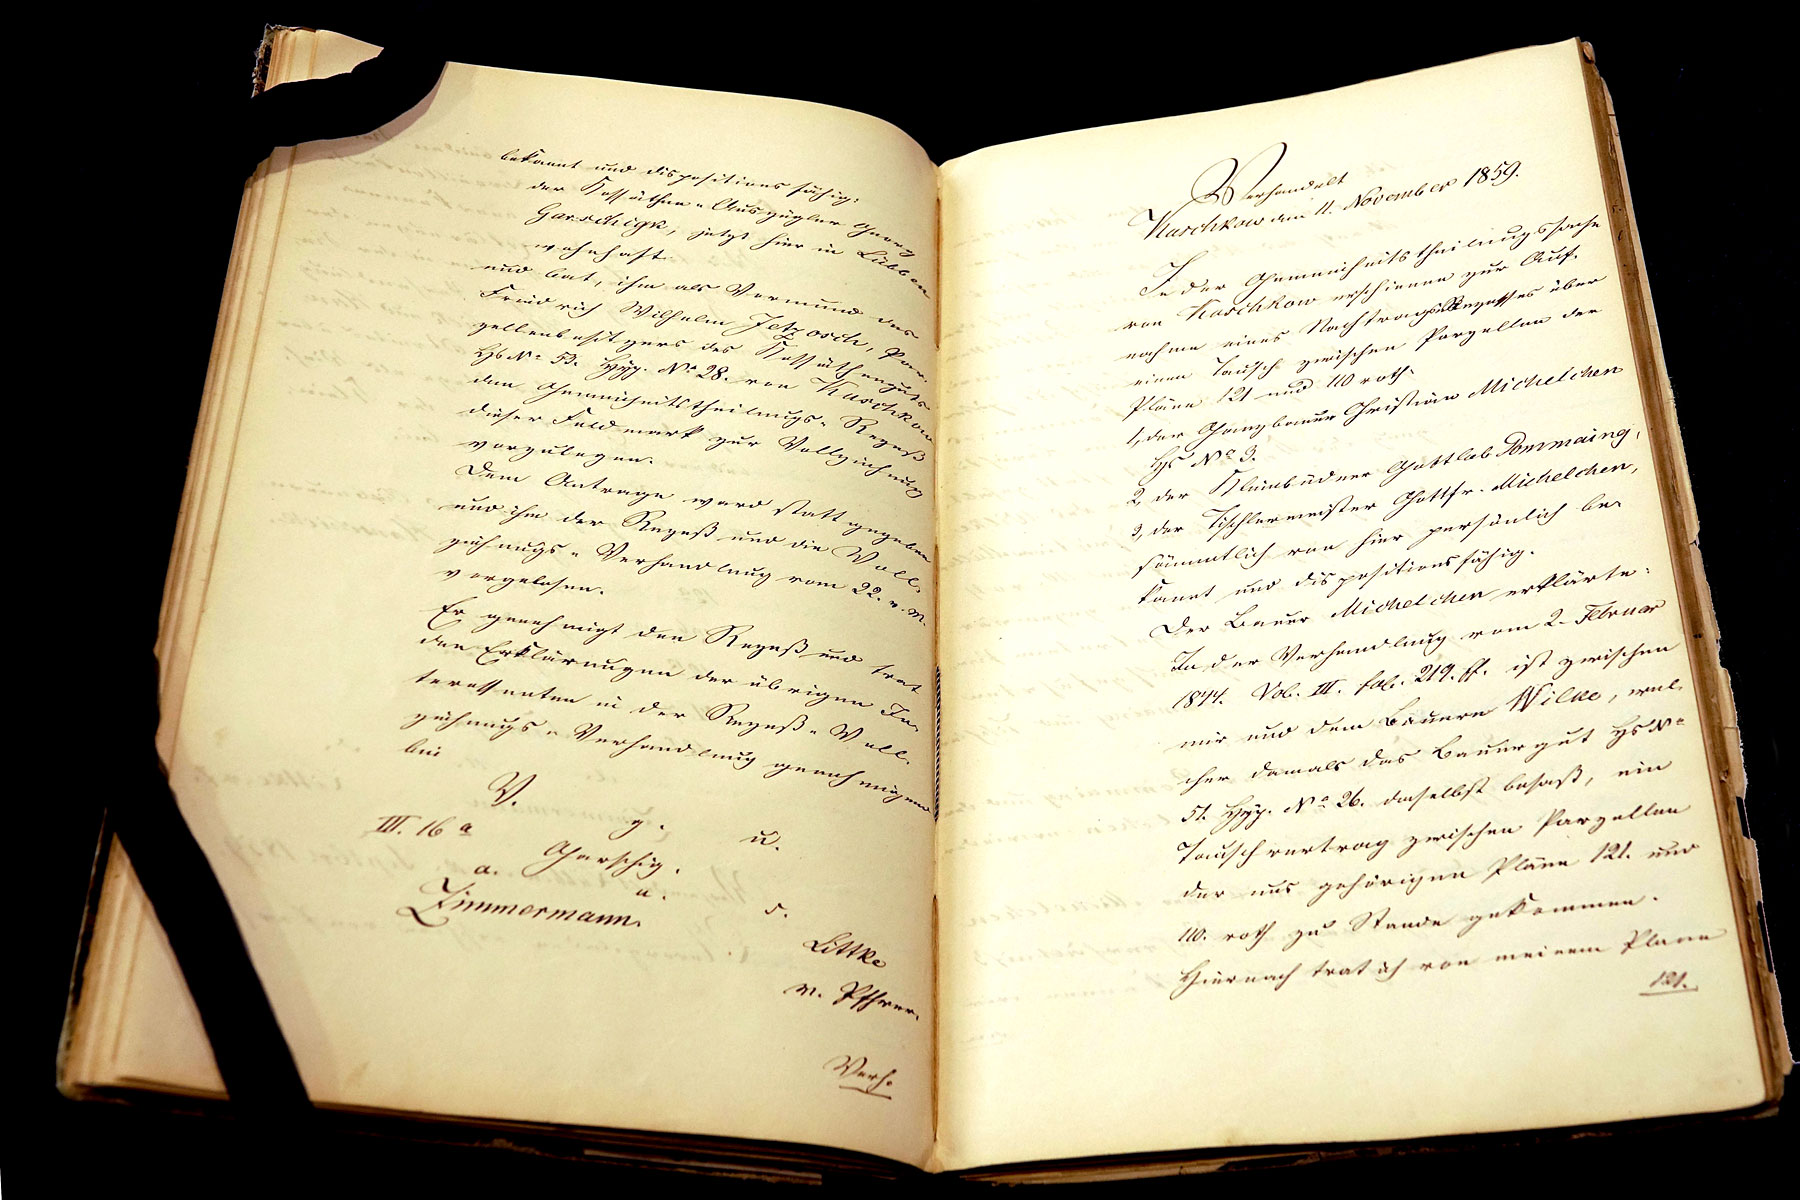 bekannt und dispositionsfähig:
der Kossäthen-Auszügler Georg
Garschigk, jetzt hier in Lübben
wohnhaft
und bat, ihm als Vormund des
Friedrich Wilhelm Jetzosch, Par-
zellenbesitzers des Kossäthenguts
Hs № 53. Hyp. № 28. von Kaschkow
den Gemeinheitstheilungs-Rezeß
dieser Feldmark zur Vollziehung
vorzulegen.
Dem Antrage ward statt gegeben
und ihm der Rezeß und die Voll-
ziehungs-Verhandlung vom 22. v. M.
vorgelesen.
Er genehmigt den Rezeß und trat
den Erklärungen der übrigen In-
teressenten in der Rezeß-Voll-
ziehungs-Verhandlung genehmigend
bei
V. g. u.
III. 16 a
Garschig.
a. u. s.
Zimmermann.
Littke
Verh.
Verhandelt
Kaschkow den 11. November 1859.
In der Gemeinheitstheilungssache
von Kaschkow erschienen zur Auf-
nahme eines Nachtragsrezesses über
einen Tausch zwischen Parzellen der
Pläne 121 und 110 roth.
1, der Ganzbauer Christian Michelchen
Hs № 3.
2, der Kleinbüdner Gottlob Pommaing,
3, der Tischlermeister Gottfr. Michelchen,
sämmtlich von hier persönlich be-
kannt und dispositionsfähig.
Der Bauer Michelchen erklärte:
In der Verhandlung vom 2. Februar
1844. Vol. III. fol. 219. ff. ist zwischen
mir und dem Bauern Wilke, wel-
cher damals das Bauergut Hs №
51. Hyp. № 26. daselbst besaß, ein
Tauschvertrag zwischen Parzellen
der uns gehörigen Pläne 121. und
110. roth zu Stande gekommen.
Hiernach trat ich von meinem Plane
121.